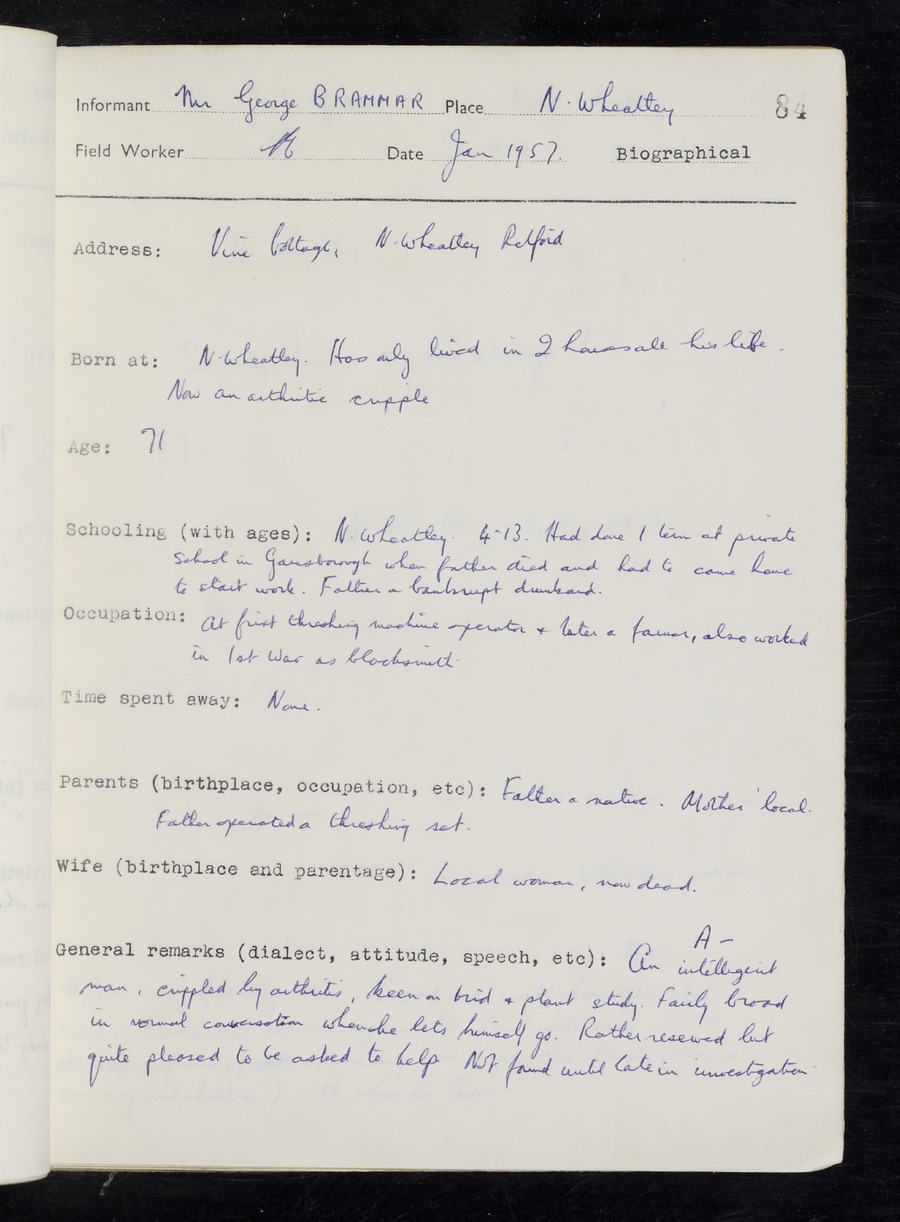 Informant Mr George BRAMMAR Place N. Wheatley 84
Field Worker Date Jan 1957. Biographical
Address: Vine Cottage, N. Wheatley Retford
Born at: N. Wheatley. Has only lived in 2 houses all his life.
Now an arthritic cripple
Age: 71
Schooling (with ages): N. Wheatley. 4-13. Had done 1 term at private
school in Gainsborough when father died and had to come home
to start work. Father a bankrupt drunkard.
Occupation: At first threshing machine operator & later a farmer, also worked
in 1st War as blacksmith
Time spent away: None.
Parents (birthplace, occupation, etc): Father a native. Mother local.
Father operated a threshing set.
Wife (birthplace and parentage): Local woman, now dead.
A-
General remarks (dialect, attitude, speech, etc): An intelligent
man, crippled by arthritis, keen on bird & plant study. Fairly broad
in normal conversation when he lets himself go. Rather reserved but
quite pleased to be asked to help Not found until late in investigation